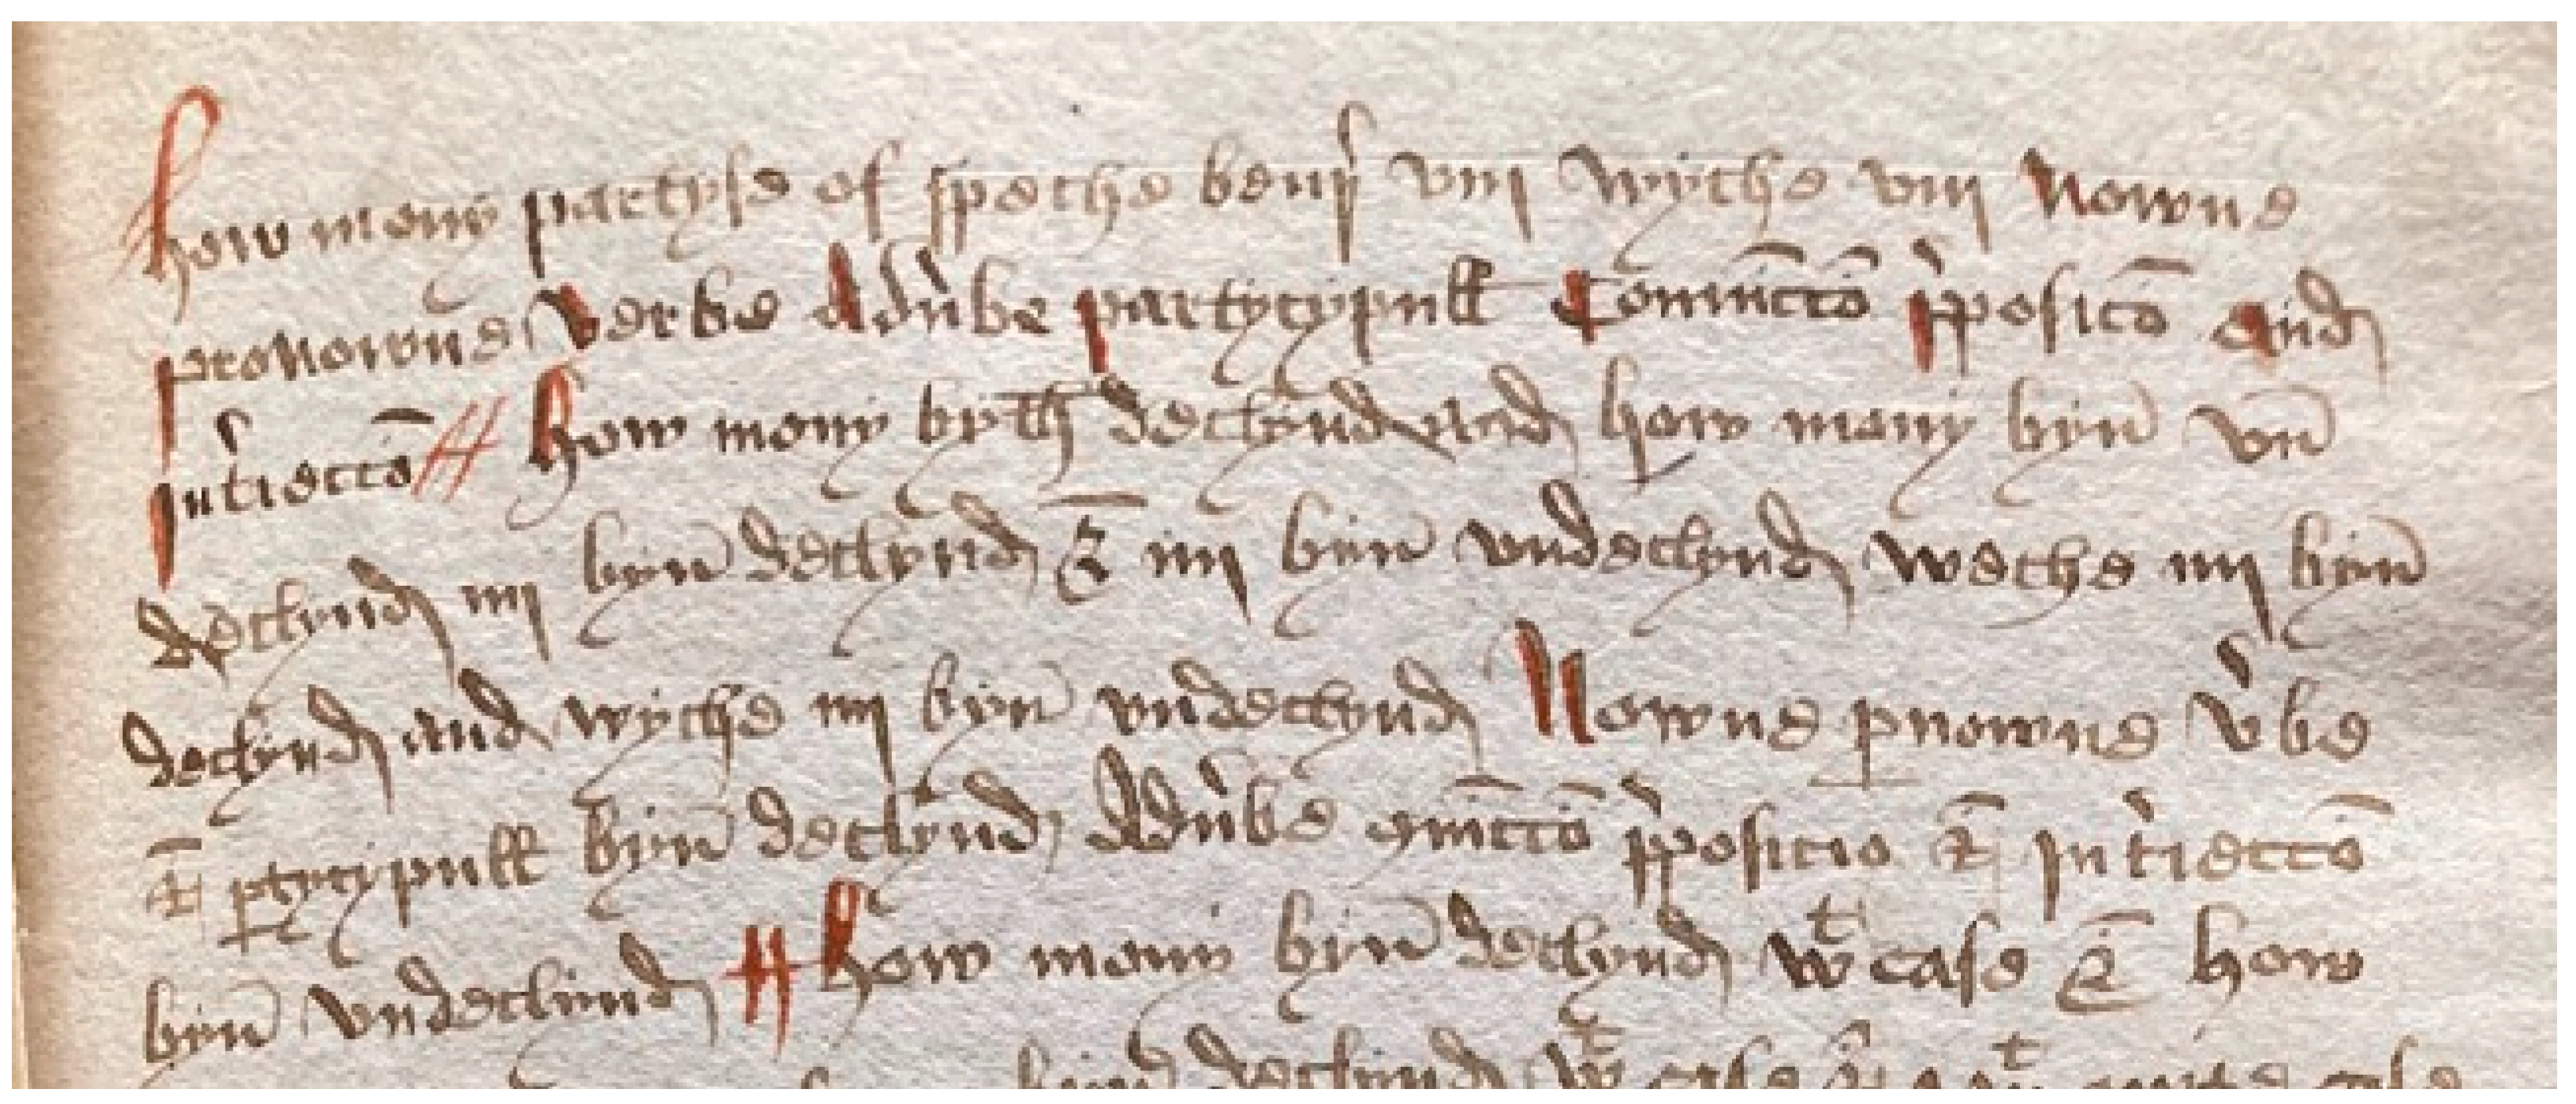 how mony partyse of speche benӯ viij Wyche viij Nowne
pronowne Verbe Aduͥbe partycypull Coniuncc̄ō pͥposicō And
Intͥieccō How mony byth declynd and how many byn̄ vn̄
declynd iiij byn̄ declynd & iiij byn̄ vndeclynd weche iiij byn̄
declynd and wyche iiij byn̄ vndeclynd Nowne ꝓnowne vͥbe
& ꝑtycypull byn̄ declynd Aduͥbe ꝯiuncc̄ō pͥposicio & Intͥieccō
byn̄ vndeclynd How mony byn̄ declynd wᵗ case & how
byn̄ declynd wᵗ case &